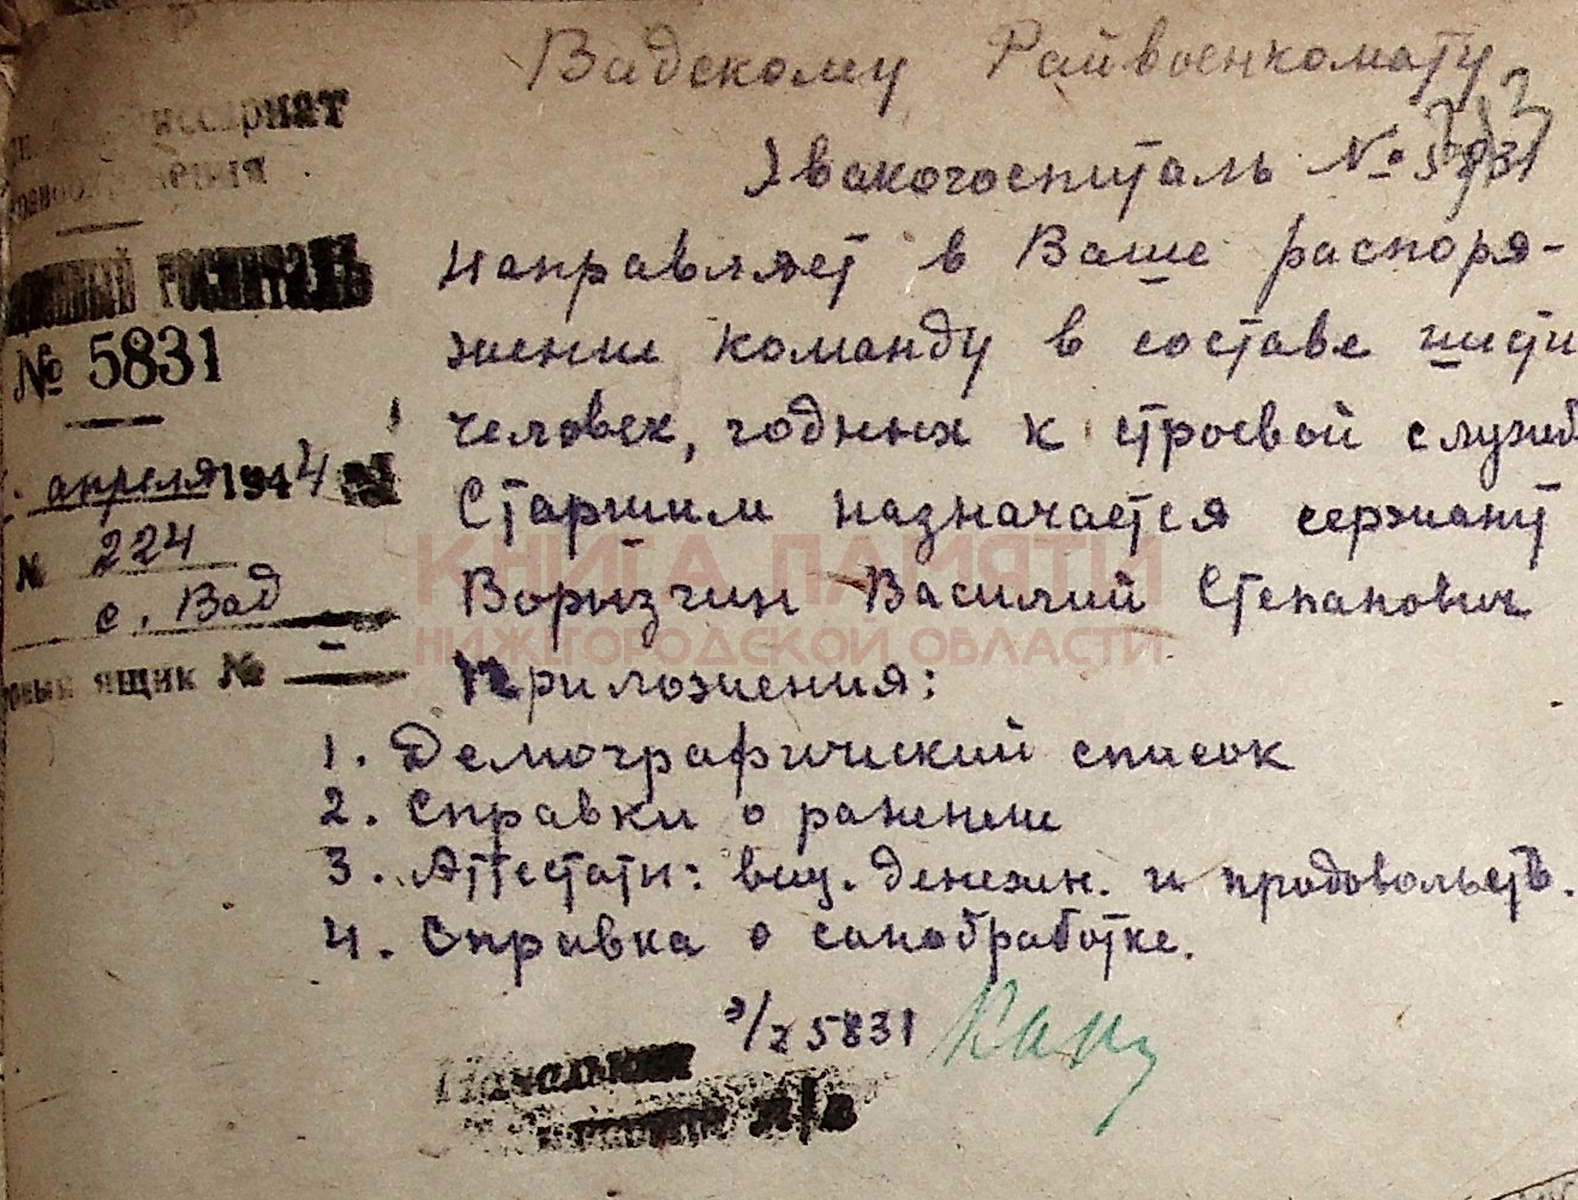 Вадскому Райвоенкомату
Эвакогоспиталь № 5831
направляет в Ваше распоря-
жение команду в составе шести
человек, годных к строевой служб
Старшим назначается сержант
Ворызгин Василий Степанович
Приложения:
1. Демографический список
2. Справки о ранении
3. Аттестаты: вещ. денежн. и продовольств.
4. Справка о санобработке.
э/г 5831
Начальник
госпиталь
№ 5831
апреля 1944
№ 224
с. Вад
ящик № —
КНИГА ПАМЯТИ
НИЖЕГОРОДСКОЙ ОБЛАСТИ